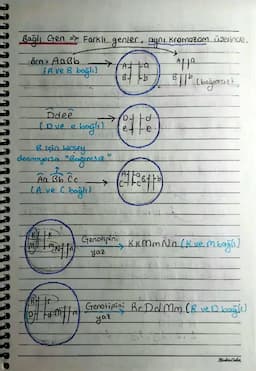 Bağlı Gen => Farklı genler, aynı kromozom üzerinde.
örn> AaBb
(A ve B bağlı)
A a
B b
A a
B b
(bağımsız)
Ddee
(D ve e bağlı)
D d
e e
B için birşey
denmiyorsa "Bağımsız"
Aa Bb Cc
(A ve C bağlı)
A a B b
C c
Genotipini yaz
KkMmNn (K ve M bağlı)
Genotipini yaz
RrDdMm (R ve D bağlı)